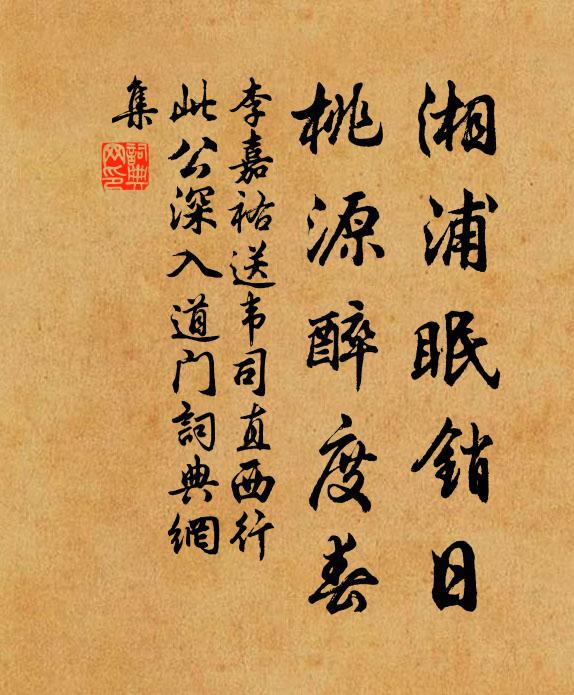 湘浦眠銷日
桃源醉度春
李嘉祐送韦司直西行
此公深入道门詞典網
集
詞典網印